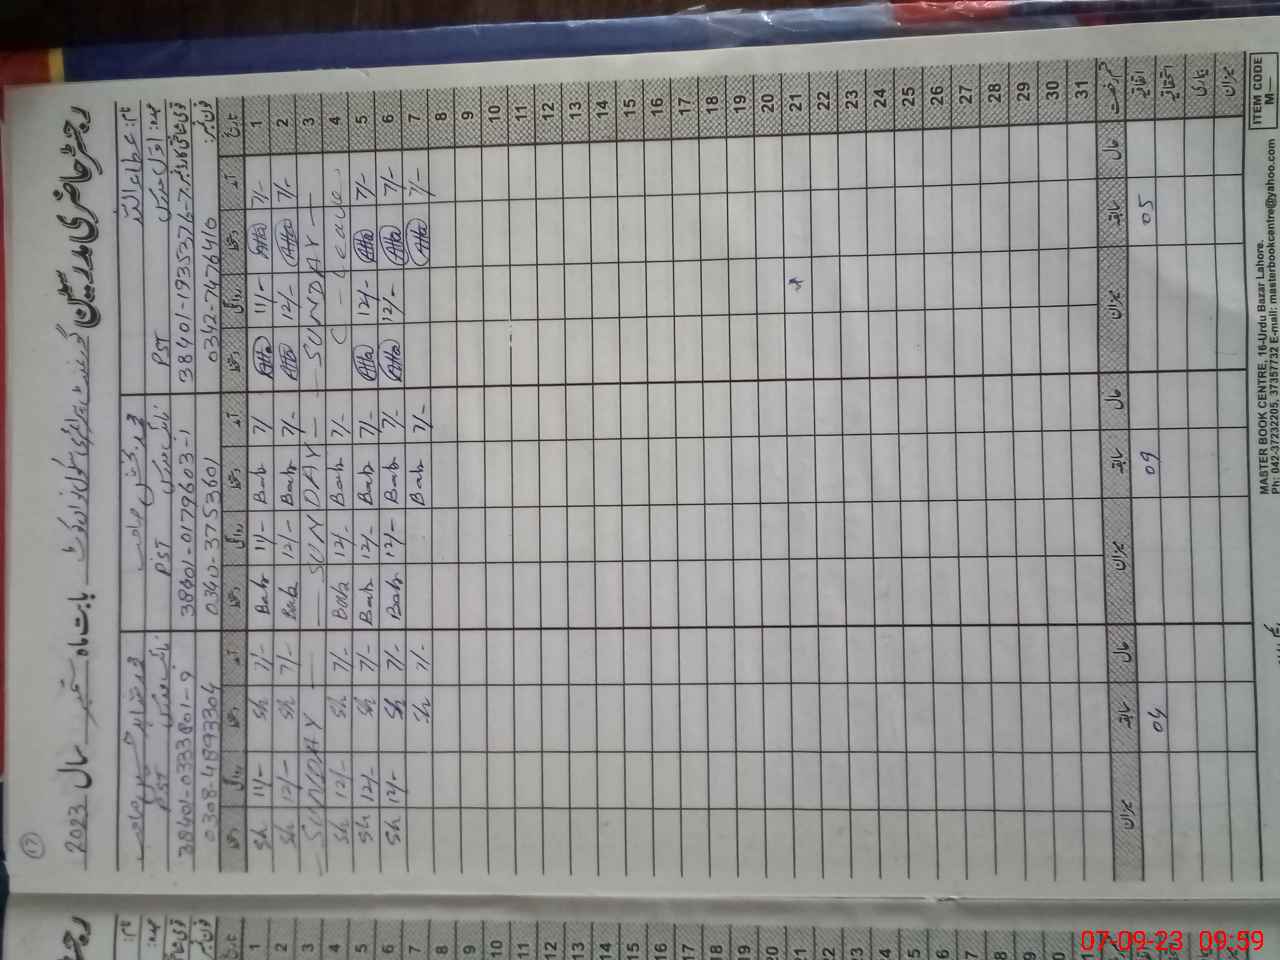 17
رجسٹر حاضری مدرسین گورنمنٹ پرائمری سکول بابت ماہ ستمبر سال 2023
نام: عطاء اللہ
نام: محمد
نام: محمد
عہدہ: اول مدرس PST
PST
PST
38401-1935376-7
38401-0179603-1
38401-0333801-9
فون نمبر: 0342-7476410
0340-3753601
0308-4893304
تاریخ آمد دستخط روانگی دستخط آمد دستخط روانگی دستخط آمد دستخط روانگی دستخط
1 7/- Atta 11/- Atta 7/ Bab 11/- Bab 7/- Sh 11/- Sh
2 7/- Atta 12/- Atta 7/- Bab 12/- Bab 7/- Sh 12/- Sh
3 — SUNDAY — — SUNDAY — — SUNDAY —
4 C - Leave 7/- Bab 12/- Bab 7/- Sh 12/- Sh
5 7/- Atta 12/- Atta 7/- Bab 12/- Bab 7/- Sh 12/- Sh
6 7/- Atta 12/- Atta 7/- Bab 12/- Bab 7/- Sh 12/- Sh
7 7/- Atta 7/- Bab 7/- Sh
8
9
10
11
12
13
14
15
16
17
18
19
20
21
22
23
24
25
26
27
28
29
30
31
قسم رخصت حال سابقہ میزان حال سابقہ میزان حال سابقہ میزان
اتفاقیہ 05 09 04
استحقاقیہ
بیماری
میزان
ITEM CODE
M—
MASTER BOOK CENTRE, 16-Urdu Bazar Lahore.
Ph: 042-37232205, 37357732 E-mail: masterbookcentre@yahoo.com
نام:
عہدہ:
فون نمبر
تاریخ
1
2
3
4
5
6
7
8
9
10
11
12
13
14
15
16
17
18
19
20
21
22
23
24
25
26
27
28
29
07-09-23 09:59